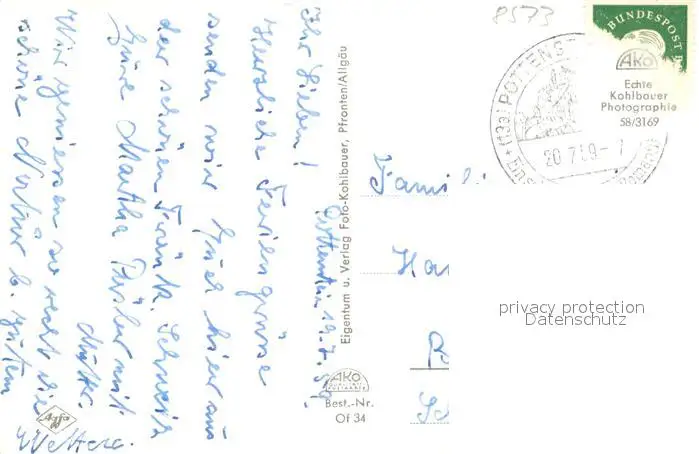 Pottenstein 19.7.59.
Ihr Lieben!
Herzliche Feriengrüsse
senden wir Euch hier aus
der schönen Fränk. Schweiz
Eure Martha Rösler mit
Mutter.
Wir geniessen so recht die
schöne Natur b. gutem
Wetter.
Eigentum u. Verlag Foto-Kohlbauer, Pfronten/Allgäu
AKO
Best.-Nr.
Of 34
Agfa
8573
BUNDESPOST
(13a) POTTENST
20.7.59-7
AKO
Echte
Kohlbauer
Photographie
58/3169
Famili
Ha
privacy protection
Datenschutz